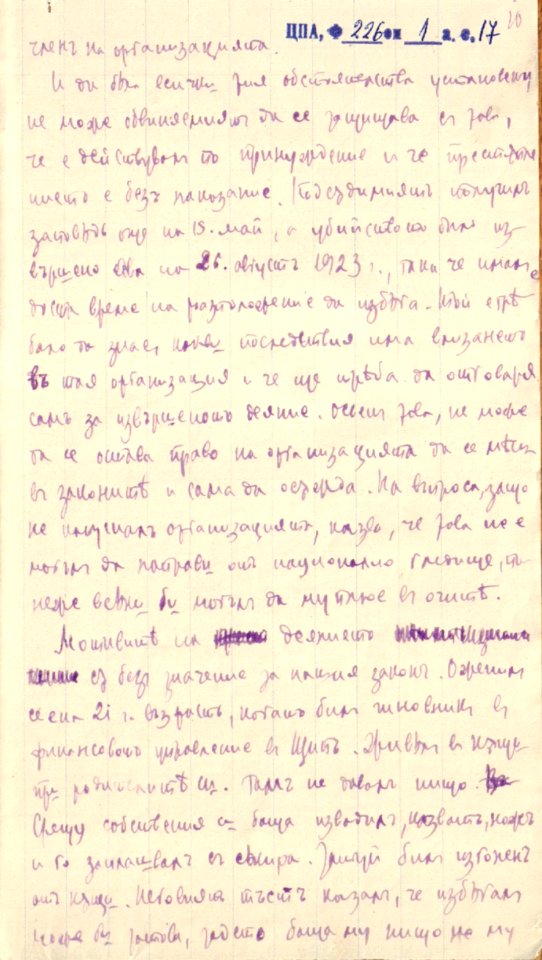 ЦПА, Ф 226 оп 1 а. е. 17
10
членъ на организацията.
И да бѣха всички тия обстоятелства установени
не може обвиняемиятъ да се защищава съ това,
че е действувалъ по принуждение и че престѫпле
нието е безъ наказание. Подсѫдимиятъ получилъ
заповѣдь още на 15. май, а убийството било из-
вършено едва на 26. августъ 1923 г., така че ималъ
доста време на разположение да избѣга. Той е трѣ
бало да знае, какви последствия има влизането
въ тая организация и че ще трѣба да отговаря
самъ за извършеното деяние. Освен това, не може
да се остава право на организацията да се мѣси
въ законитѣ и сама да осѫжда. На въпроса, защо
не напусналъ организацията, казва, че това не е
могълъ да направи отъ национално гледище, по-
неже всѣки би могълъ да му плюе въ очитѣ.
Мотивитѣ на деянието
сѫ безъ значение за нашия законъ. Оженилъ
се на 21 г. възрасть, когато билъ чиновникъ въ
финансовото управление въ Щипъ. Живѣлъ въ кѫщи
при родителитѣ си. Тамъ не давалъ нищо.
Срещу собствения си баща извадилъ, казватъ, ножъ
и го заплашвалъ съ секира. Затуй билъ изгоненъ
отъ кѫщи. Неговиятъ тъсть казалъ, че избѣгалъ
може би затова, задето баща му нищо не му